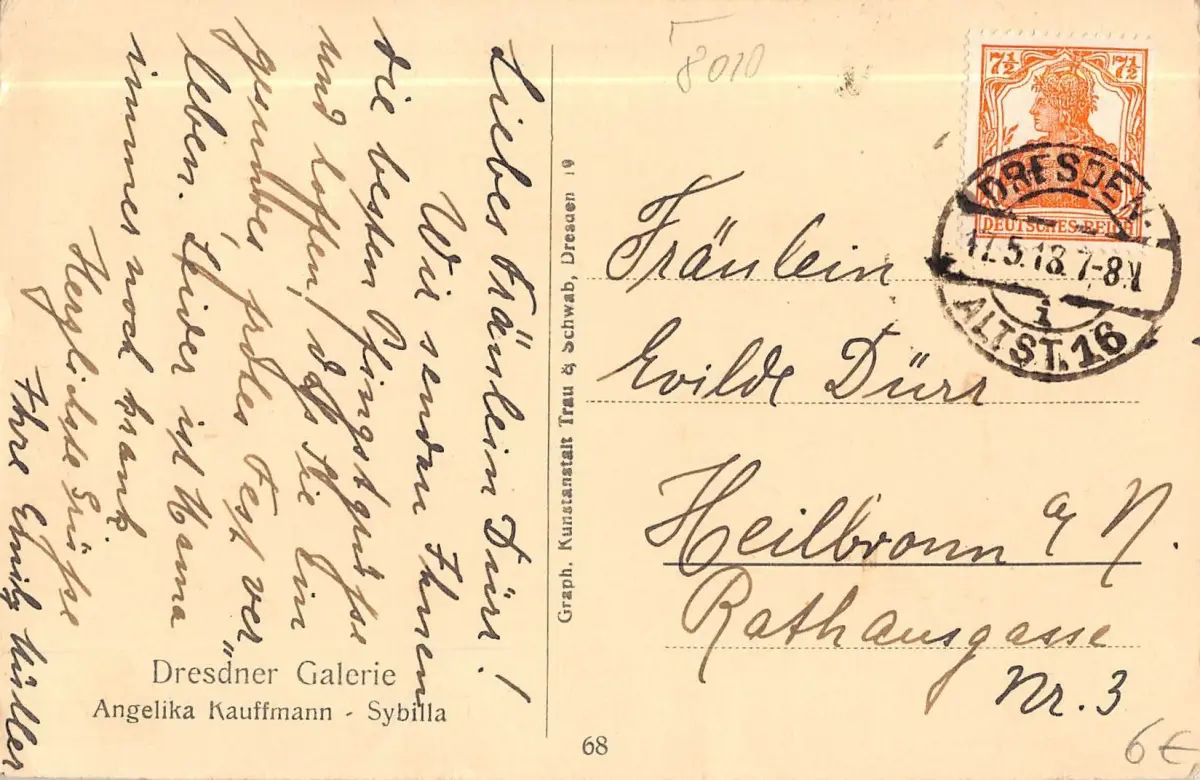 Liebes Fräulein Dürr!
Wir senden Ihnen
die besten Pfingstgrüsse
und hoffen, dass Sie Ein
gesundes, frohes Fest ver„
leben. Leider ist Hanna
immer noch krank
Herzlichste Grüsse
Ihre Emily Müller
Dresdner Galerie
Angelika Kauffmann - Sybilla
Graph. Kunstanstalt Trau & Schwab, Dresden 19
68
8010
7½ 7½
DEUTSCHES REICH
DRESDEN
17.5.18. 7-8N
i
ALTST. 16
Fräulein
Dürr
Heilbronn a/N.
Rathausgasse
Nr. 3
6€